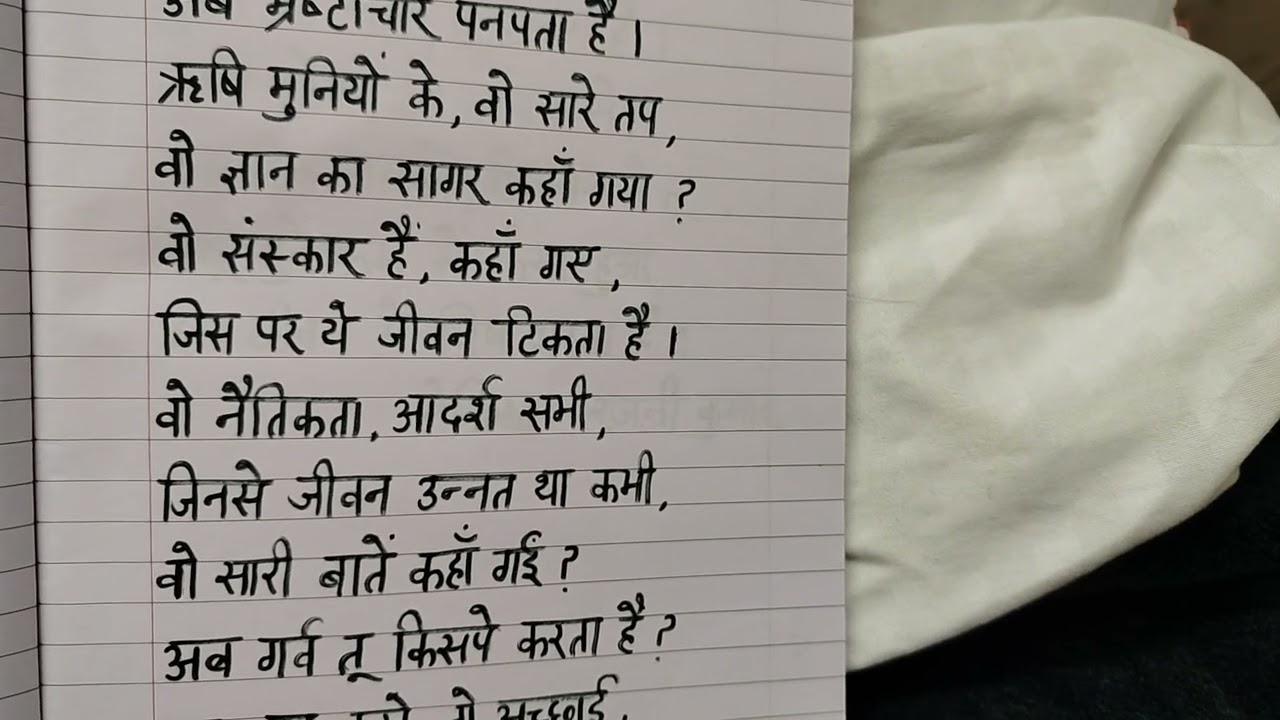 अब भ्रष्टाचार पनपता है ।
ऋषि मुनियों के, वो सारे तप,
वो ज्ञान का सागर कहाँ गया ?
वो संस्कार हैं, कहाँ गए,
जिस पर ये जीवन टिकता है ।
वो नैतिकता, आदर्श सभी,
जिनसे जीवन उन्नत था कभी,
वो सारी बातें कहाँ गईं ?
अब गर्व तू किसपे करता है ?
सच्छाई,